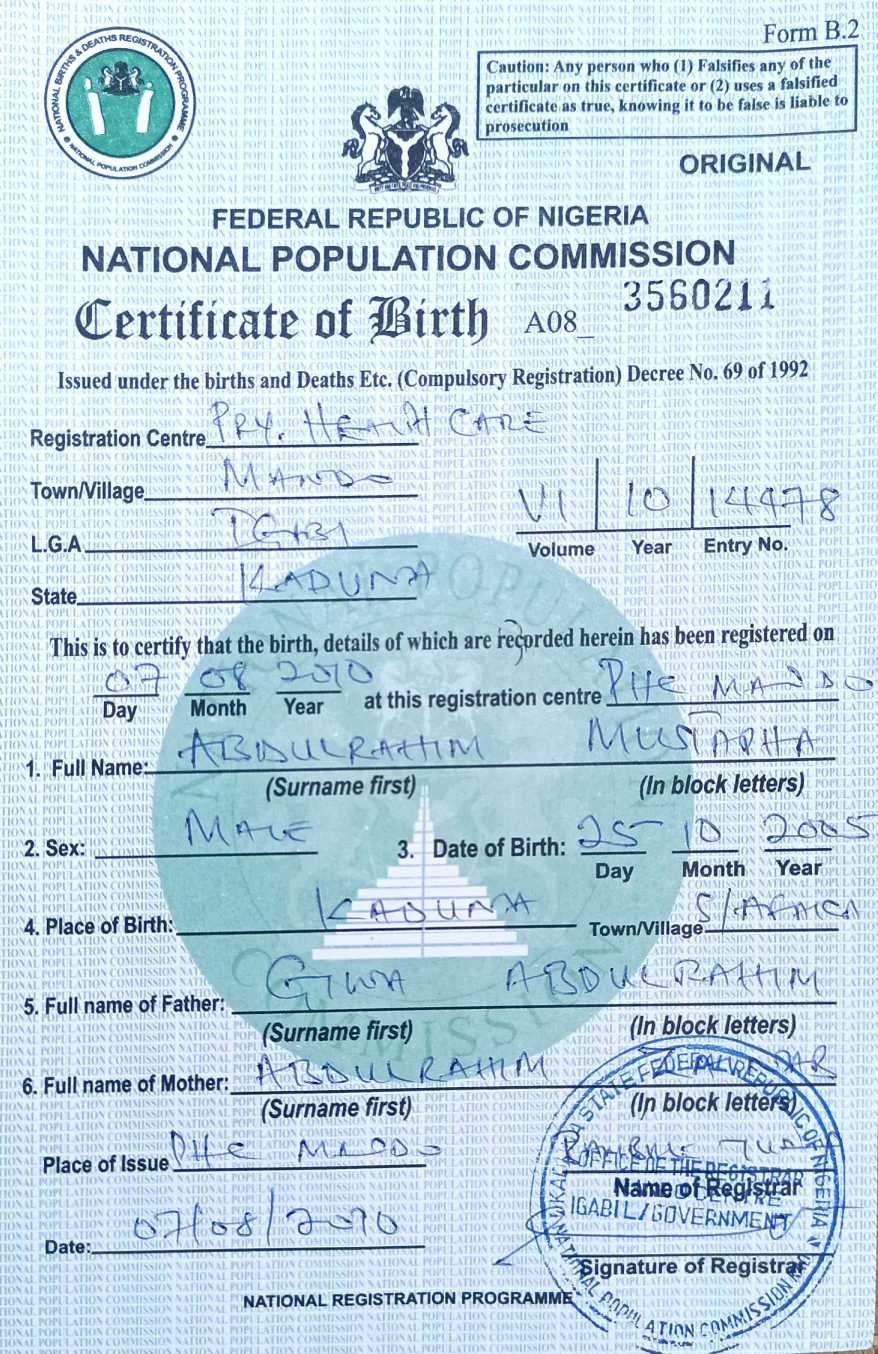 Form B.2
NATIONAL BIRTHS & DEATHS REGISTRATION PROGRAMME
NATIONAL POPULATION COMMISSION
Caution: Any person who (1) Falsifies any of the
particular on this certificate or (2) uses a falsified
certificate as true, knowing it to be false is liable to
prosecution
ORIGINAL
FEDERAL REPUBLIC OF NIGERIA
NATIONAL POPULATION COMMISSION
Certificate of Birth A08_ 3560211
Issued under the births and Deaths Etc. (Compulsory Registration) Decree No. 69 of 1992
Registration Centre PRY. HEALTH CARE
Town/Village MANDO
L.G.A IGABI
State KADUNA
VI 10 14478
Volume Year Entry No.
This is to certify that the birth, details of which are recorded herein has been registered on
07 08 2010 at this registration centre PHC MANDO
Day Month Year
1. Full Name: ABDULRAHIM MUSTAPHA
(Surname first) (In block letters)
2. Sex: MALE 3. Date of Birth: 25 10 2005
Day Month Year
4. Place of Birth: KADUNA Town/Village S/AFRICA
5. Full name of Father: GIWA ABDULRAHIM
(Surname first) (In block letters)
6. Full name of Mother: ABDULRAHIM
(Surname first) (In block letters)
Place of Issue PHC MANDO
Name of Registrar
Date: 07/08/2010
Signature of Registrar
KADUNA STATE FEDERAL REPUBLIC OF NIGERIA
OFFICE OF THE REGISTRAR
IGABI L/GOVERNMENT
NATIONAL POPULATION COMMISSION
NATIONAL REGISTRATION PROGRAMME